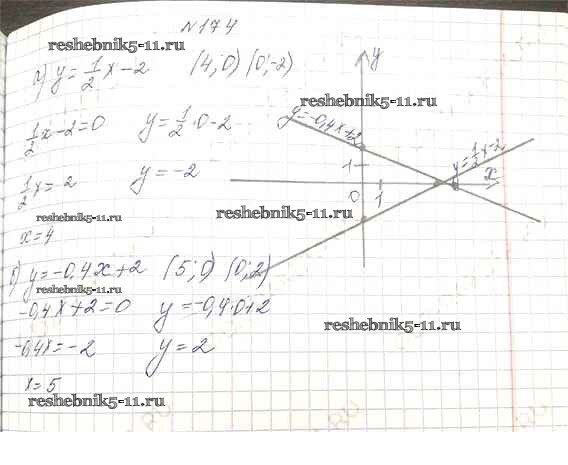 №174
reshebnik5-11.ru
а) y = 1/2 x - 2 (4; 0) (0; -2)
1/2 x - 2 = 0 y = 1/2 · 0 - 2
1/2 x = 2 y = -2
reshebnik5-11.ru
x = 4
б) y = -0,4x + 2 (5; 0) (0; 2)
reshebnik5-11.ru
-0,4x + 2 = 0 y = -0,4·0+2
-0,4x = -2 y = 2
x = 5
reshebnik5-11.ru
y
reshebnik5-11.ru
y = -0,4x+2
y = 1/2 x - 2
1
x
0 1
reshebnik5-11.ru
reshebnik5-11.ru